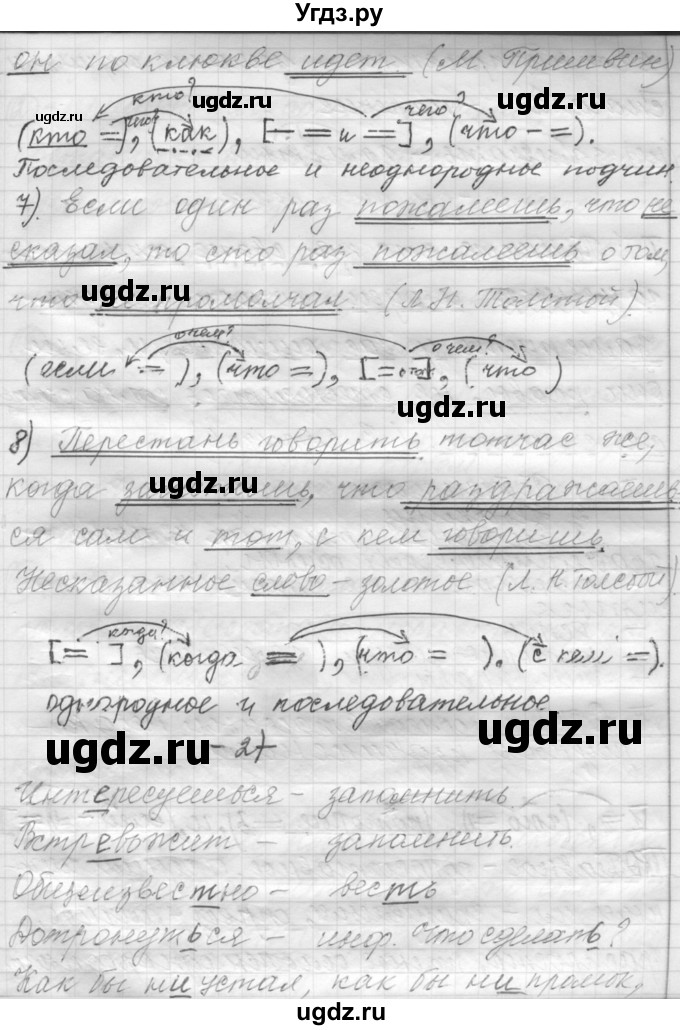 Угдз.ру
он по клюкве идет (М. Пришвин)
кто? чего?
(кто =), (как), [— = и =], (что — =).
Последовательное и неоднородное подчин.
7). Если один раз пожалеешь, что не
сказал, то сто раз пожалеешь о том,
что не промолчал (Л.Н. Толстой).
о чем? о чем?
(если =), (что =), [= о том], (что )
8) Перестань говорить тотчас же,
когда заметишь, что раздражаешь-
ся сам и тот, с кем говоришь.
Несказанное слово – золотое (Л. Н Толстой).
когда?
[= ], (когда = ), (что = ). (с кем =).
однородное и последовательное
- 2 -
Интересуешься – запомнить
Встревожит – запомнить.
Общеизвестно – весть
Дотронуться – инф. что сделать?
Как бы ни устал, как бы ни промок,
ugdz.ru
ugdz.ru
ugdz.ru
ugdz.ru
ugdz.ru
ugdz.ru
ugdz.ru
ugdz.ru
ugdz.ru
ugdz.ru
ugdz.ru
ugdz.ru
ugdz.ru
ugdz.ru